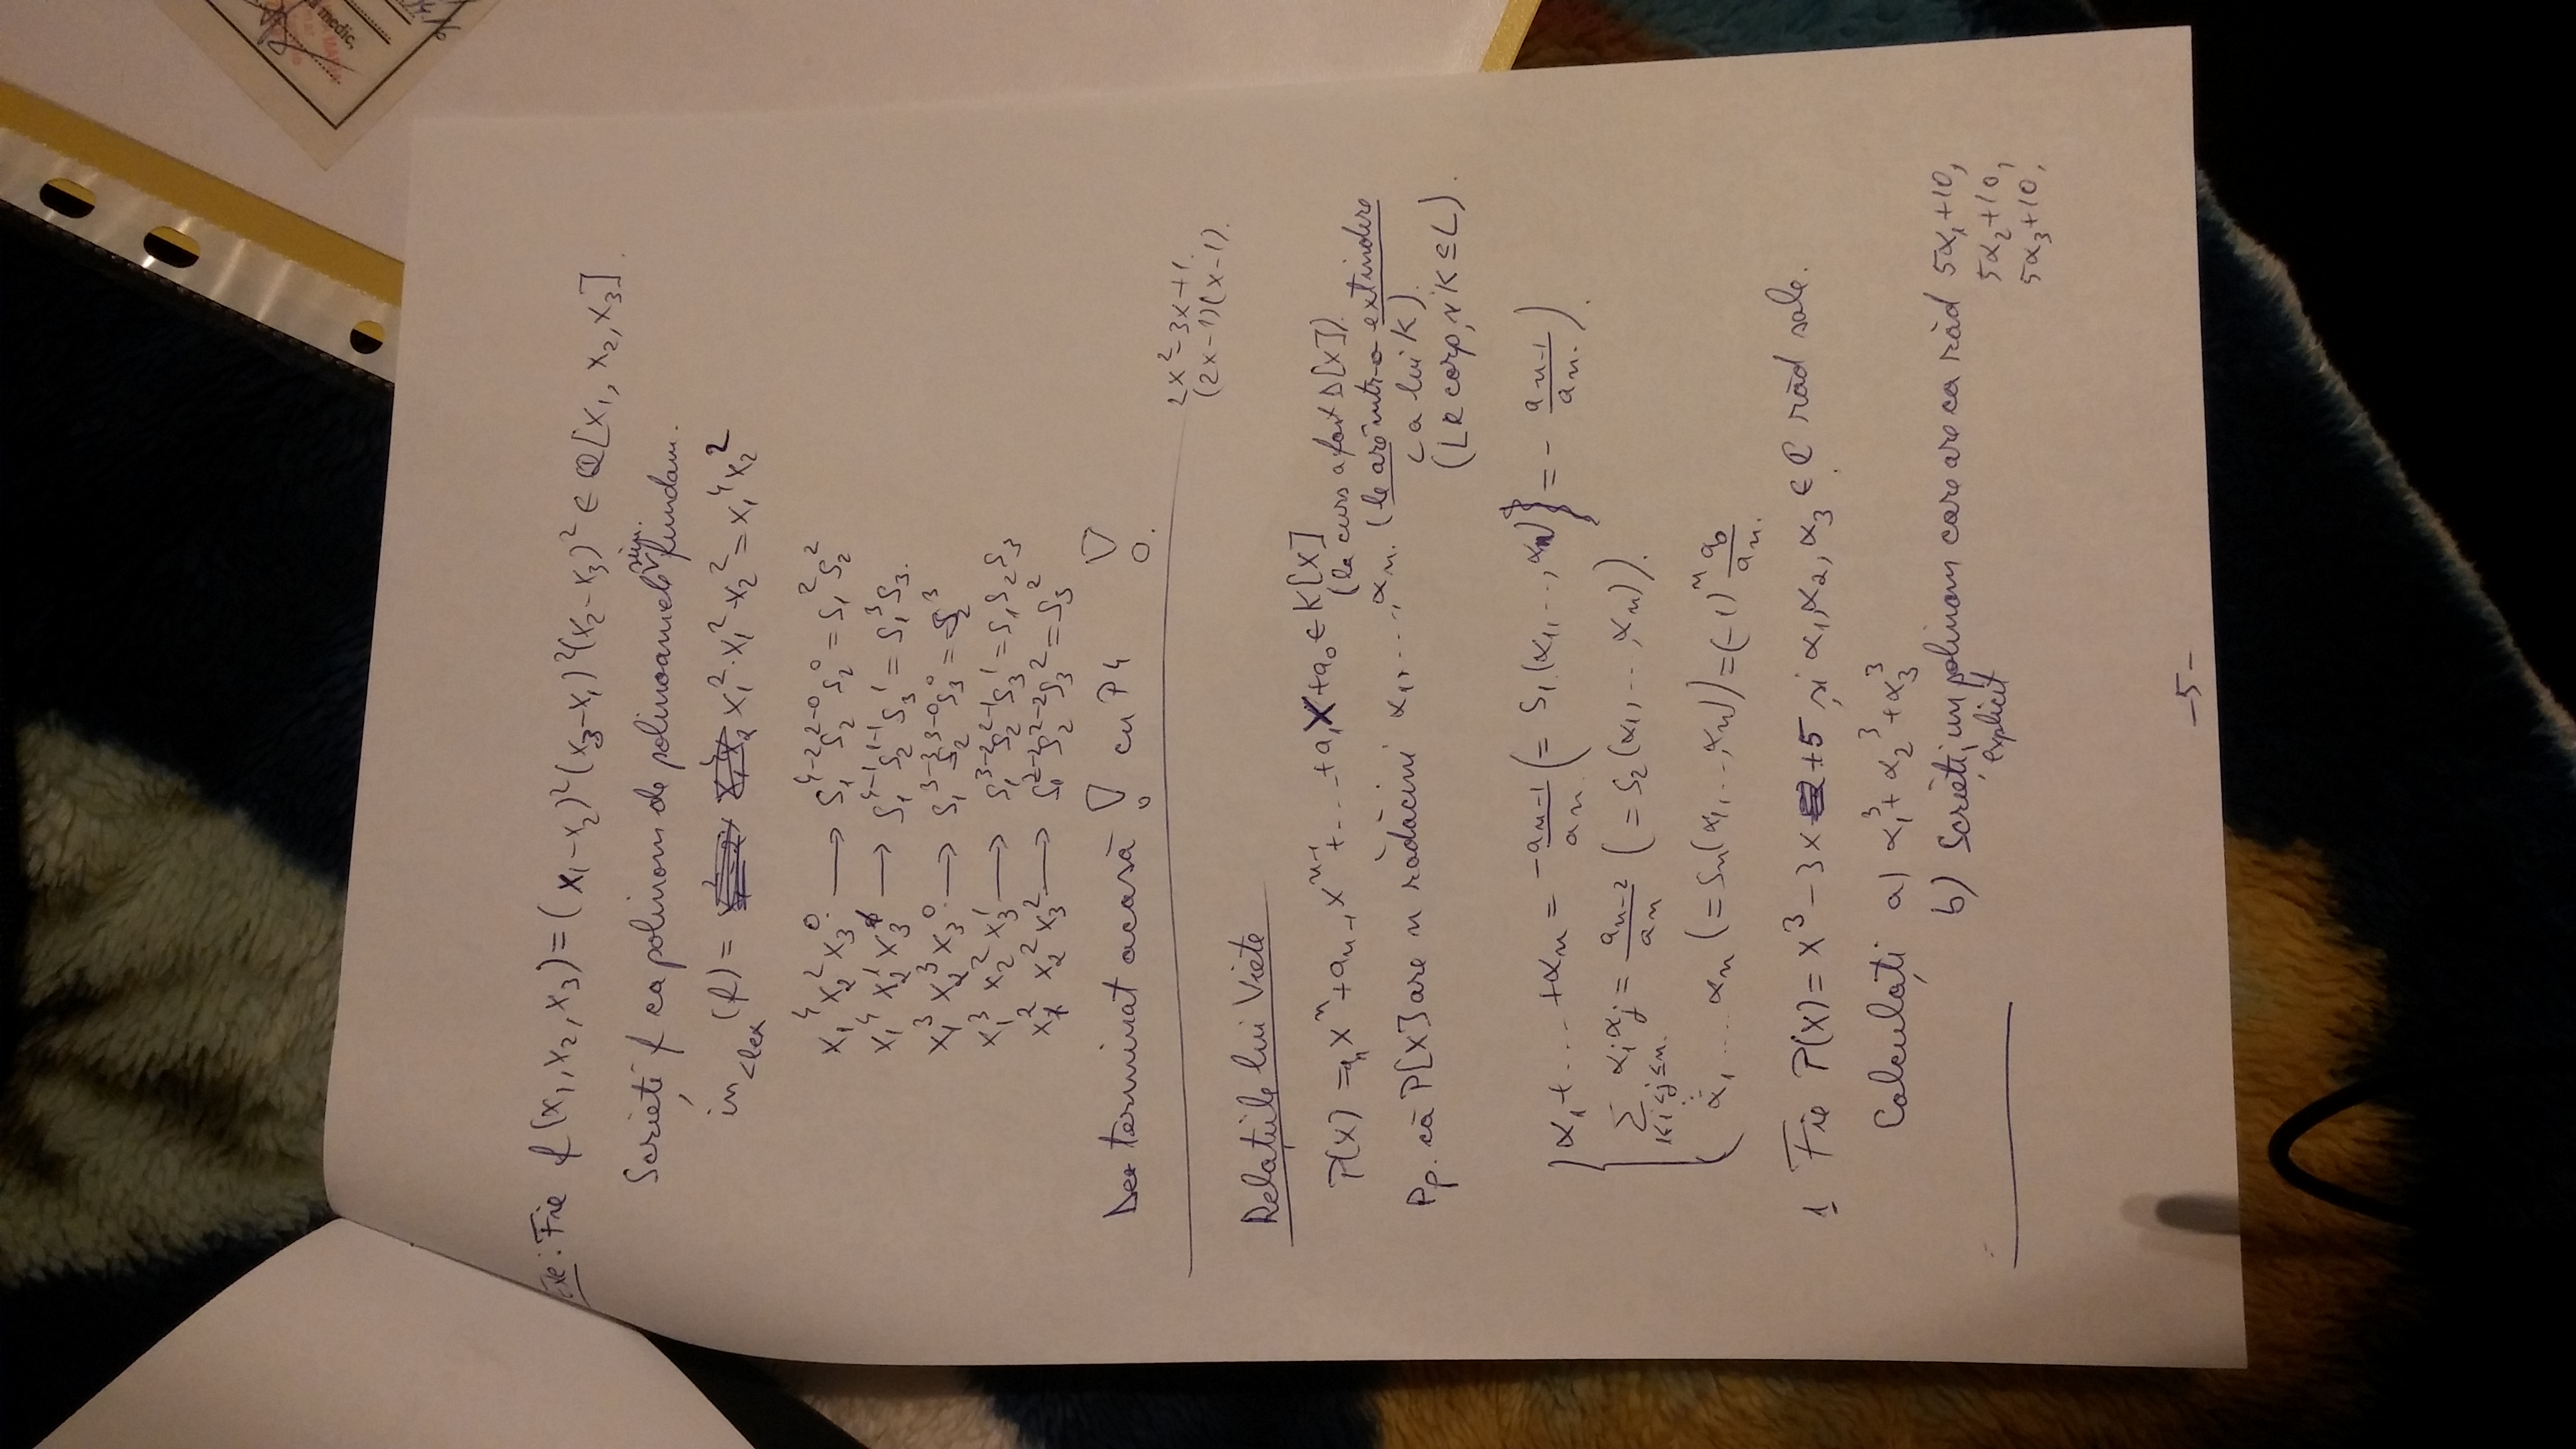 Exe: Fie f(x₁, x₂, x₃) = (x₁-x₂)²(x₃-x₁)²(x₂-x₃)² ∈ Q[x₁, x₂, x₃].
Scrieți f ca polinom de polinoamele sim. fundam.
in <lex (f) = x₁²·x₁²·x₂² = x₁⁴x₂²
x₁⁴ x₂² x₃⁰ → S₁⁴⁻² S₂²⁻⁰ S₂⁰ = S₁² S₂²
x₁⁴ x₂¹ x₃¹ → S₁⁴⁻¹ S₂¹⁻¹ S₃¹ = S₁³ S₃.
x₁³ x₂³ x₃⁰ → S₁³⁻³ S₂³⁻⁰ S₃⁰ = S₂³
x₁³ x₂² x₃¹ → S₁³⁻² S₂²⁻¹ S₃¹ = S₁S₂S₃
x₁² x₂² x₃² → S₁²⁻² S₂²⁻² S₃² = S₃²
De terminat acasă ! cu P4 !
2x²-3x+1.
(2x-1)(x-1).
Relațiile lui Viete
P(X) = aₙXⁿ + aₙ₋₁Xⁿ⁻¹ + .... + a₁X + a₀ ∈ K[X]
(la curs a fost D[X]).
Pp. că P[X] are n rădăcini α₁, ..., αₙ. (le are într-o extindere
a lui K).
(L e corp, K ≤ L).
α₁ + .... + αₙ = -aₙ₋₁/aₙ (= S₁(α₁, ..., αₙ) = - aₙ₋₁/aₙ.).
∑ αᵢαⱼ = aₙ₋₂/aₙ (= S₂(α₁, ..., αₙ)).
1≤i<j≤n.
⋮
α₁ .... αₙ (= Sₙ(α₁, ..., αₙ)) = (-1)ⁿ a₀/aₙ.
1 Fie P(X) = X³ - 3X + 5 și α₁, α₂, α₃ ∈ C răd sale.
Calculați a) α₁³ + α₂³ + α₃³
b) Scrieți explicit un polinom care are ca răd 5α₁+10,
5α₂+10,
5α₃+10,
-5-